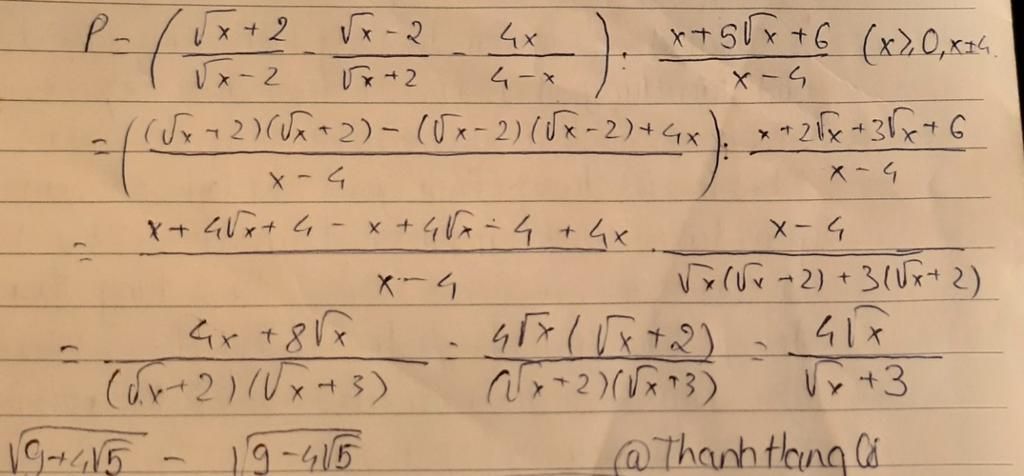 P = ( (√x + 2)/(√x - 2) - (√x - 2)/(√x + 2) - 4x/(4 - x) ) : (x + 5√x + 6)/(x - 4) (x ≥ 0, x ≠ 4
= ( ((√x + 2)(√x + 2) - (√x - 2)(√x - 2) + 4x)/(x - 4) ) : (x + 2√x + 3√x + 6)/(x - 4)
= (x + 4√x + 4 - x + 4√x - 4 + 4x)/(x - 4) · (x - 4)/(√x(√x + 2) + 3(√x + 2))
= (4x + 8√x)/((√x + 2)(√x + 3)) = (4√x(√x + 2))/((√x + 2)(√x + 3)) = 4√x/(√x + 3)
√(9 + 4√5) - √(9 - 4√5) @ThanhHang